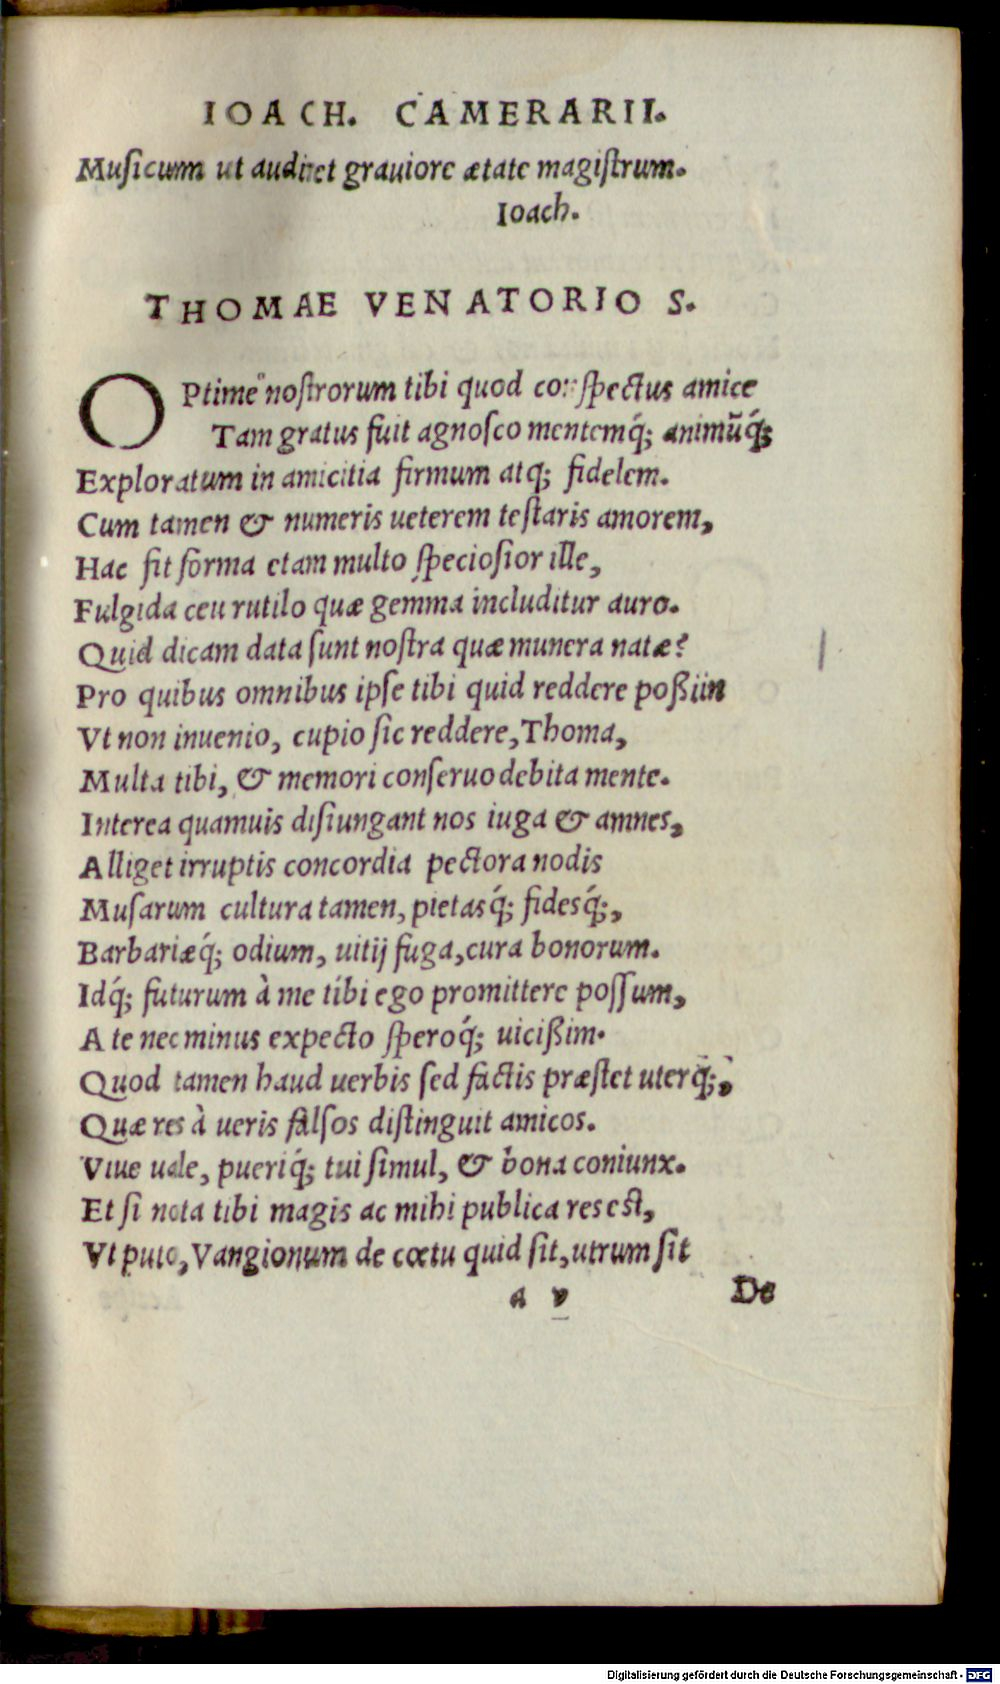 IOACH. CAMERARII.
Musicum ut audiret grauiore ætate magistrum.
Ioach.
THOMAE VENATORIO S.
OPtime nostrorum tibi quod conspectus amice
Tam gratus fuit agnosco mentemq́; animũq́;
Exploratum in amicitia firmum atq; fidelem.
Cum tamen & numeris ueterem testaris amorem,
Hac fit forma etam multo speciosior ille,
Fulgida ceu rutilo quæ gemma includitur auro.
Quid dicam data sunt nostra quæ munera natæ?
Pro quibus omnibus ipse tibi quid reddere poßim
Vt non inuenio, cupio sic reddere, Thoma,
Multa tibi, & memori conseruo debita mente.
Interea quamuis disiungant nos iuga & amnes,
Alliget irruptis concordia pectora nodis
Musarum cultura tamen, pietasq́; fidesq́;,
Barbariæq́; odium, uitij fuga, cura bonorum.
Idq́; futurum à me tibi ego promittere possum,
A te nec minus expecto speroq́; uicißim.
Quod tamen haud uerbis sed factis præstet uterq́;,
Quæ res à ueris falsos distinguit amicos.
Viue uale, pueriq́; tui simul, & bona coniunx.
Et si nota tibi magis ac mihi publica res est,
Vt puto, Vangionum de cœtu quid sit, utrum sit
a v De
Digitalisierung gefördert durch die Deutsche Forschungsgemeinschaft - DFG